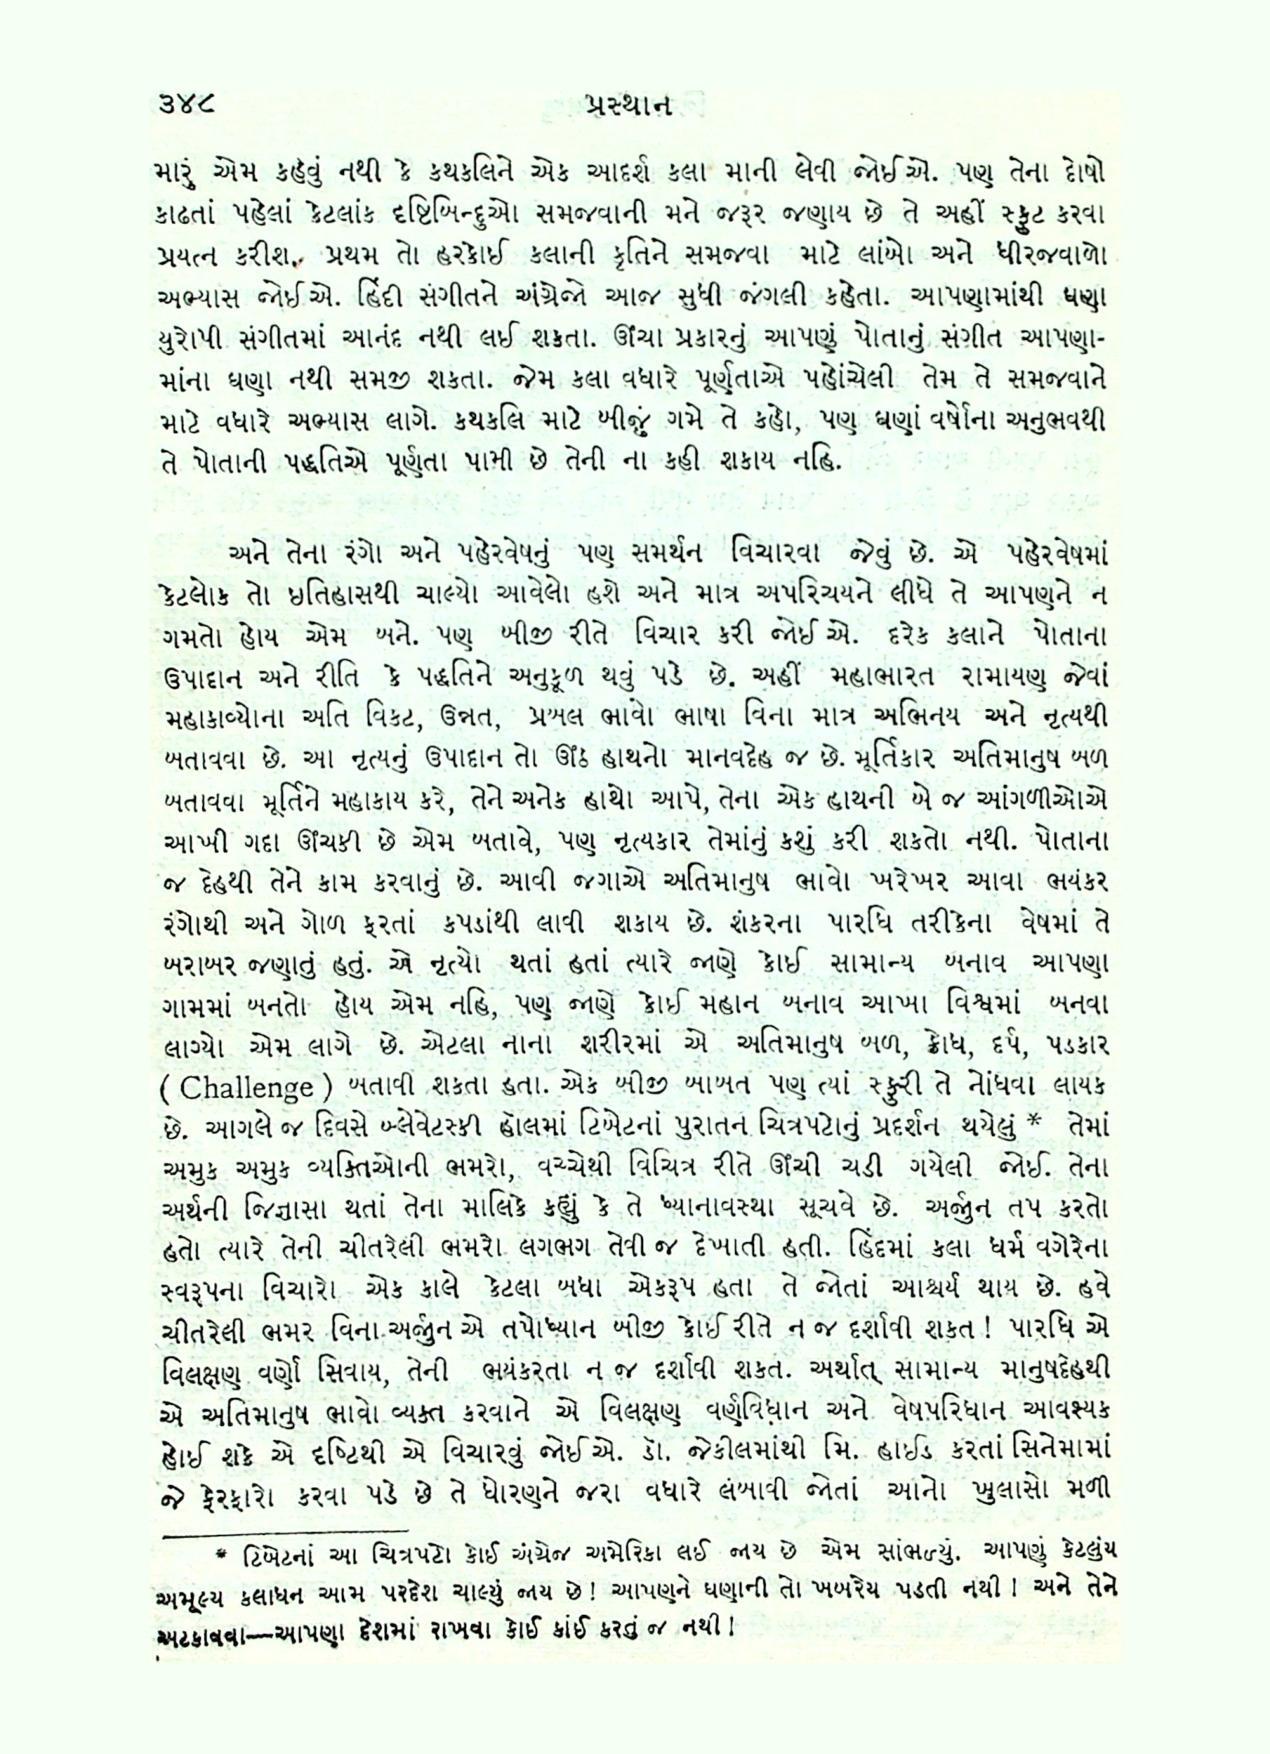 ૩૪૮
પ્રસ્થાન
મારું એમ કહેવું નથી કે કથકલિને એક આદર્શ કલા માની લેવી જોઈએ. પણ તેના દોષો
કાઢતાં પહેલાં કેટલાંક દૃષ્ટિબિન્દુઓ સમજવાની મને જરૂર જણાય છે તે અહીં સ્ફુટ કરવા
પ્રયત્ન કરીશ. પ્રથમ તો હરકોઈ કલાની કૃતિને સમજવા માટે લાંબો અને ધીરજવાળો
અભ્યાસ જોઈએ. હિંદી સંગીતને અંગ્રેજો આજ સુધી જંગલી કહેતા. આપણામાંથી ઘણા
યુરોપી સંગીતમાં આનંદ નથી લઈ શકતા. ઊંચા પ્રકારનું આપણું પોતાનું સંગીત આપણા-
માંના ઘણા નથી સમજી શકતા. જેમ કલા વધારે પૂર્ણતાએ પહોંચેલી તેમ તે સમજવાને
માટે વધારે અભ્યાસ લાગે. કથકલિ માટે બીજું ગમે તે કહો, પણ ઘણાં વર્ષોના અનુભવથી
તે પોતાની પદ્ધતિએ પૂર્ણતા પામી છે તેની ના કહી શકાય નહિ.
અને તેના રંગો અને પહેરવેષનું પણ સમર્થન વિચારવા જેવું છે. એ પહેરવેષમાં
કેટલોક તો ઇતિહાસથી ચાલ્યો આવેલો હશે અને માત્ર અપરિચયને લીધે તે આપણને ન
ગમતો હોય એમ બને. પણ બીજી રીતે વિચાર કરી જોઈએ. દરેક કલાને પોતાના
ઉપાદાન અને રીતિ કે પદ્ધતિને અનુકૂળ થવું પડે છે. અહીં મહાભારત રામાયણ જેવાં
મહાકાવ્યોના અતિ વિકટ, ઉન્નત, પ્રબલ ભાવો ભાષા વિના માત્ર અભિનય અને નૃત્યથી
બતાવવા છે. આ નૃત્યનું ઉપાદાન તો ઊંઠ હાથનો માનવદેહ જ છે. મૂર્તિકાર અતિમાનુષ બળ
બતાવવા મૂર્તિને મહાકાય કરે, તેને અનેક હાથો આપે, તેના એક હાથની બે જ આંગળીઓએ
આખી ગદા ઊંચકી છે એમ બતાવે, પણ નૃત્યકાર તેમાંનું કશું કરી શકતો નથી. પોતાના
જ દેહથી તેને કામ કરવાનું છે. આવી જગાએ અતિમાનુષ ભાવો ખરેખર આવા ભયંકર
રંગોથી અને ગોળ ફરતાં કપડાંથી લાવી શકાય છે. શંકરના પારધિ તરીકેના વેષમાં તે
બરાબર જણાતું હતું. એ નૃત્યો થતાં હતાં ત્યારે જાણે કોઈ સામાન્ય બનાવ આપણા
ગામમાં બનતો હોય એમ નહિ, પણ જાણે કોઈ મહાન બનાવ આખા વિશ્વમાં બનવા
લાગ્યો એમ લાગે છે. એટલા નાના શરીરમાં એ અતિમાનુષ બળ, ક્રોધ, દર્પ, પડકાર
( Challenge ) બતાવી શકતા હતા. એક બીજી બાબત પણ ત્યાં સ્ફુરી તે નોંધવા લાયક
છે. આગલે જ દિવસે બ્લેવેટસ્કી હૉલમાં ટિબેટનાં પુરાતન ચિત્રપટોનું પ્રદર્શન થયેલું * તેમાં
અમુક અમુક વ્યક્તિઓની ભમરો, વચ્ચેથી વિચિત્ર રીતે ઊંચી ચડી ગયેલી જોઈ. તેના
અર્થની જિજ્ઞાસા થતાં તેના માલિકે કહ્યું કે તે ધ્યાનાવસ્થા સૂચવે છે. અર્જુન તપ કરતો
હતો ત્યારે તેની ચીતરેલી ભમરો લગભગ તેવી જ દેખાતી હતી. હિંદમાં કલા ધર્મ વગેરેના
સ્વરૂપના વિચારો એક કાલે કેટલા બધા એકરૂપ હતા તે જોતાં આશ્ચર્ય થાય છે. હવે
ચીતરેલી ભમર વિના અર્જુન એ તપોધ્યાન બીજી કોઈ રીતે ન જ દર્શાવી શકત! પારધિ એ
વિલક્ષણ વર્ણો સિવાય, તેની ભયંકરતા ન જ દર્શાવી શકત. અર્થાત્ સામાન્ય માનુષદેહથી
એ અતિમાનુષ ભાવો વ્યક્ત કરવાને એ વિલક્ષણ વર્ણવિધાન અને વેષપરિધાન આવશ્યક
હોઈ શકે એ દૃષ્ટિથી એ વિચારવું જોઈએ. ડૉ. જેકીલમાંથી મિ. હાઈડ કરતાં સિનેમામાં
જે ફેરફારો કરવા પડે છે તે ધોરણને જરા વધારે લંબાવી જોતાં આનો ખુલાસો મળી
* ટિબેટનાં આ ચિત્રપટો કોઈ અંગ્રેજ અમેરિકા લઈ જાય છે એમ સાંભળ્યું. આપણું કેટલુંય
અમૂલ્ય કલાધન આમ પરદેશ ચાલ્યું જાય છે! આપણને ઘણાની તો ખબરેય પડતી નથી! અને તેને
અટકાવવા—આપણા દેશમાં રાખવા કોઈ કાંઈ કરતું જ નથી!